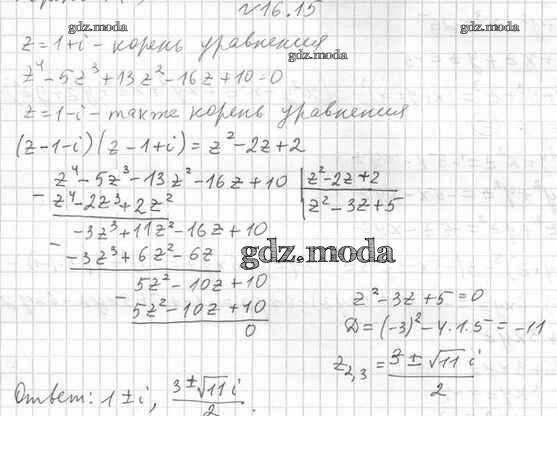 √16.15
gdz.moda
z = 1+i - корень уравнения
gdz.moda
z⁴ - 5z³ + 13z² - 16z + 10 = 0
z = 1-i - также корень уравнения
(z-1-i)(z-1+i) = z² - 2z + 2
z⁴ - 5z³ - 13z² - 16z + 10 | z² - 2z + 2
- z⁴ - 2z³ + 2z² | z² - 3z + 5
-3z³ + 11z² - 16z + 10
- -3z³ + 6z² - 6z
gdz.moda
5z² - 10z + 10
- 5z² - 10z + 10
0
z² - 3z + 5 = 0
D = (-3)² - 4·1·5 = -11
z₂,₃ = (3 ± √11 i) / 2
Ответ: 1 ± i, (3 ± √11 i) / 2.